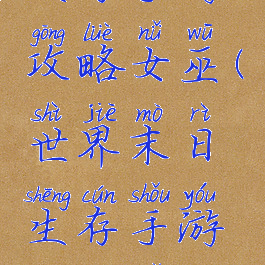 gōng lüè nǚ wū
攻略女巫(
shì jiè mò rì
世界末日
shēng cún shǒu yóu
生存手游